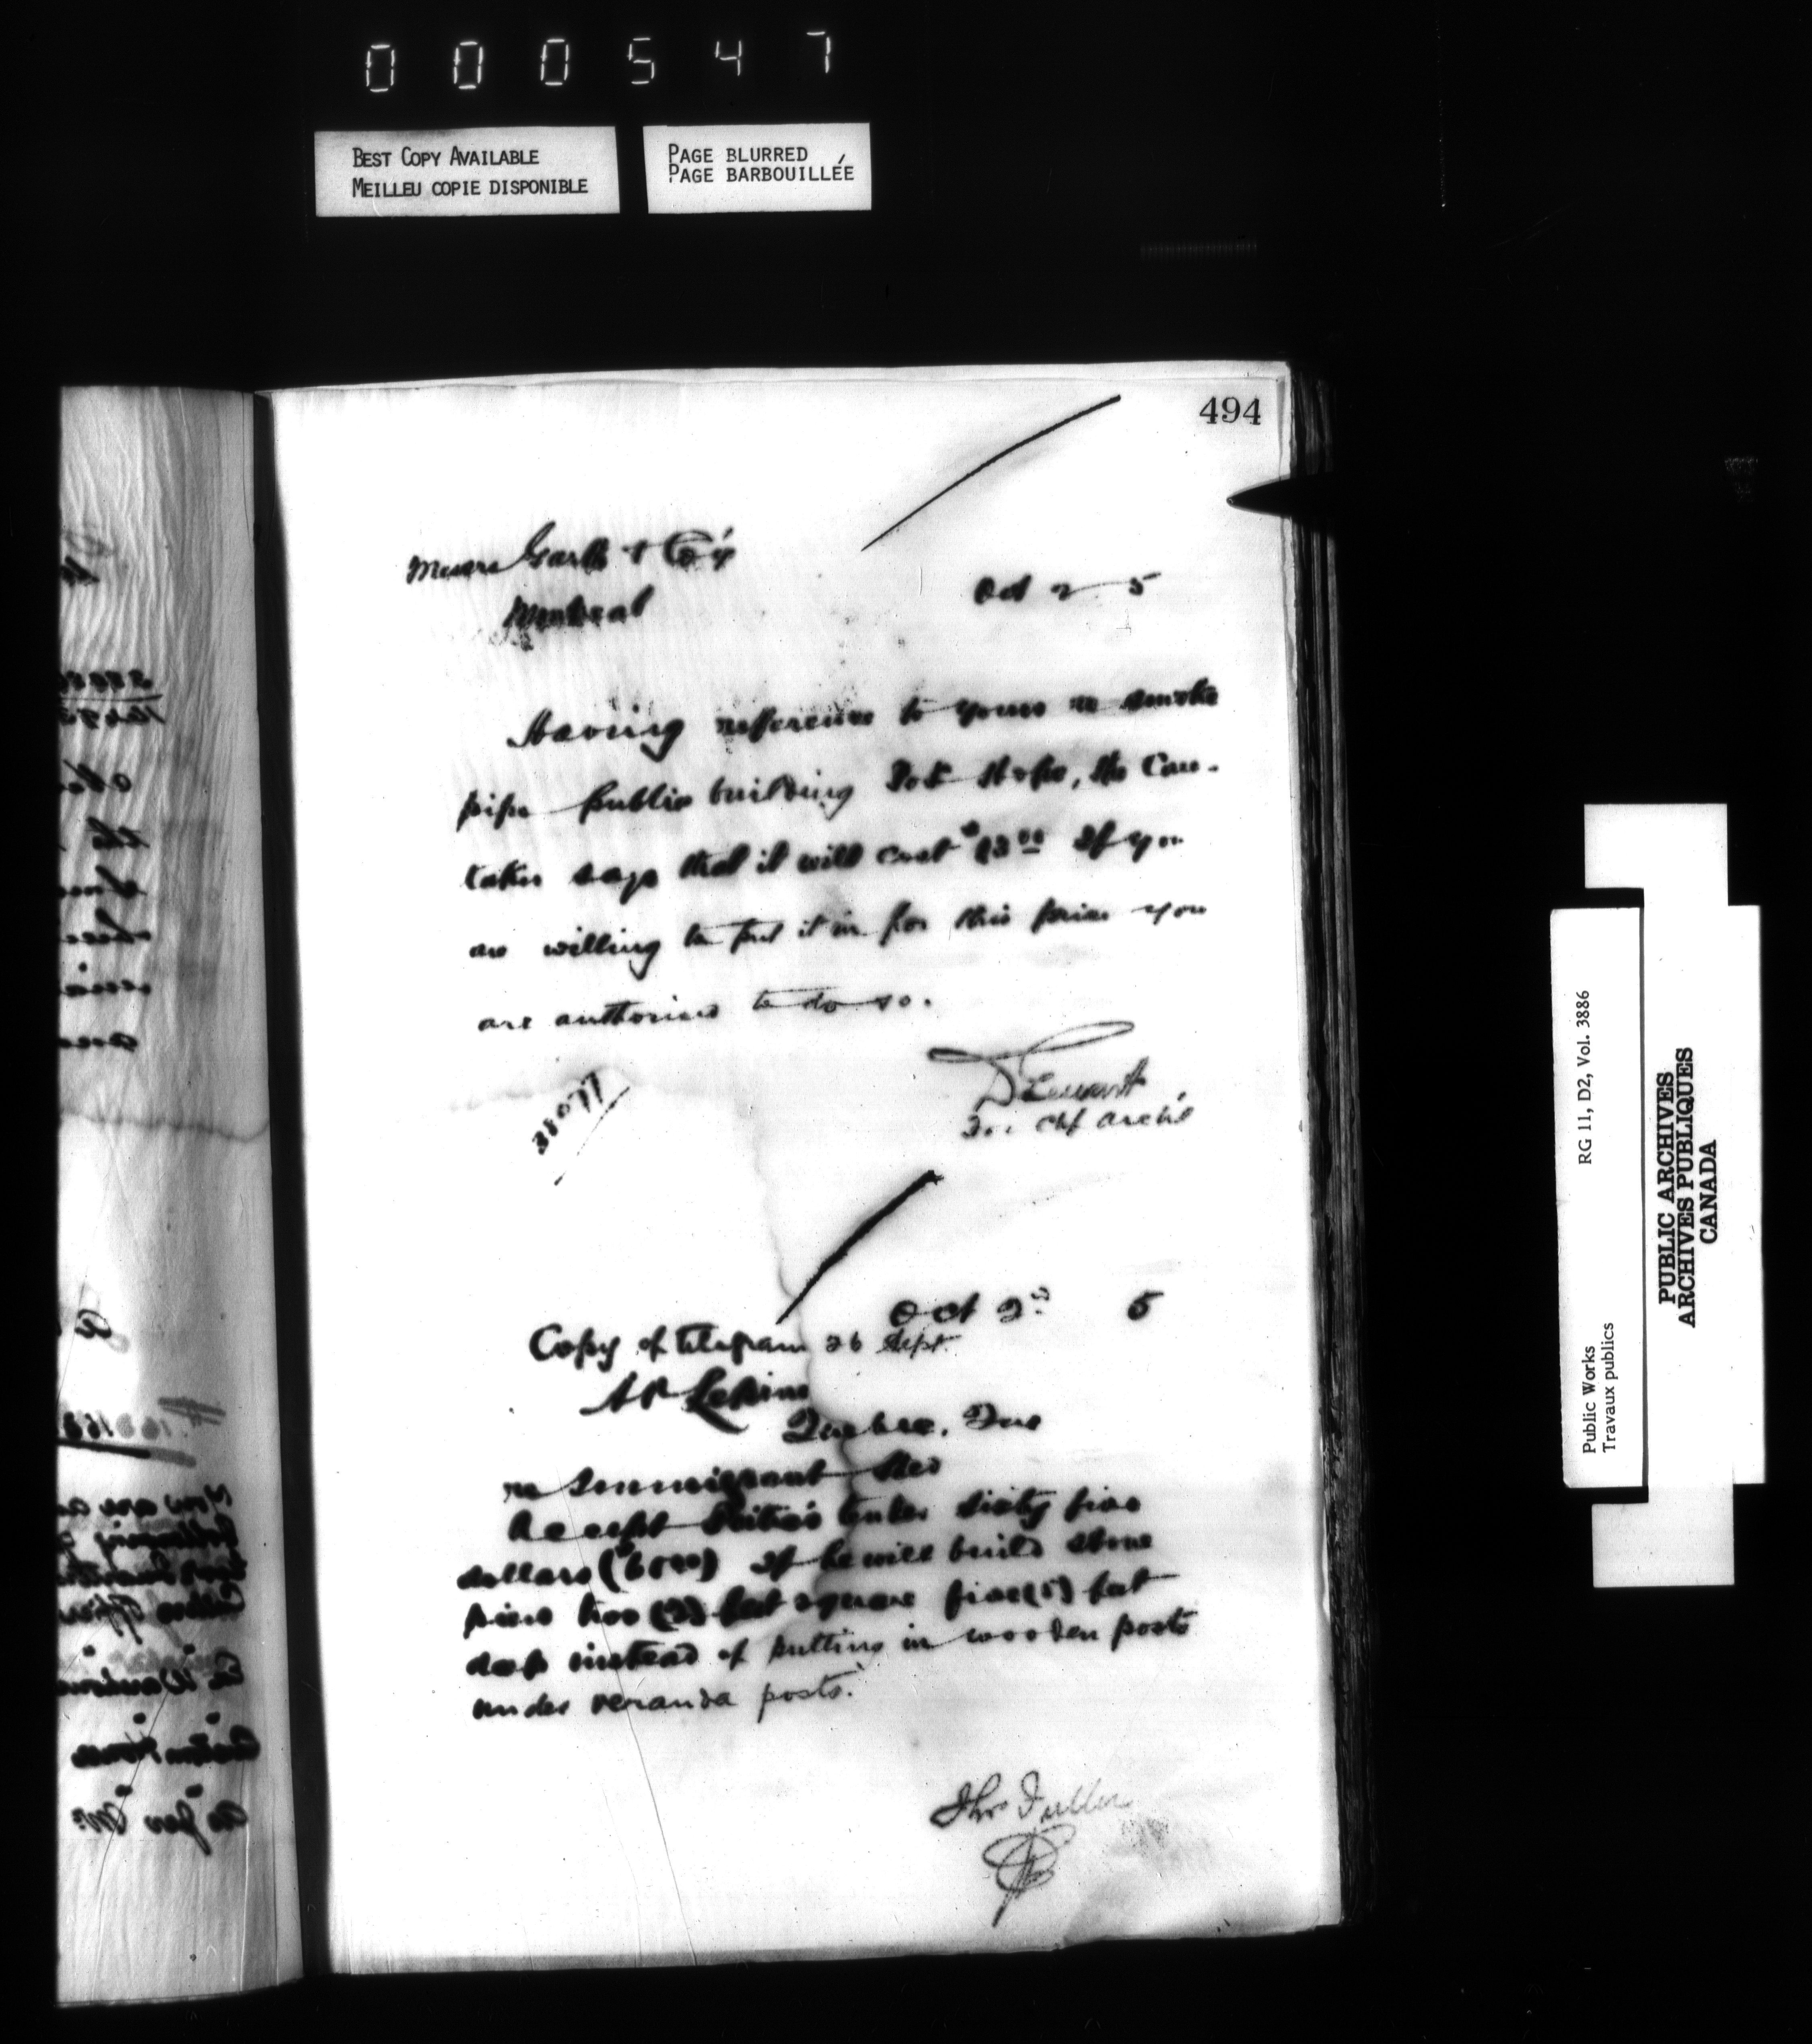 000547
BEST COPY AVAILABLE
MEILLEU COPIE DISPONIBLE
PAGE BLURRED
PAGE BARBOUILLÉE
494
Messrs Garth & Co'y
Montreal
Oct 2 5
Having refference to yours re smoke
pipe public building Port Hope, the Care-
taker says that it will cost $13.00 If you
are willing to put it in for this price you
are authorised to do so.
D Ewart
For Chf Arch't
38077
Oct 2nd 5
Copy of telegram 26 Sept.
Lepine
Quebec, Que
re Immigrant Shed
Accept tender sixty five
dollars ($6500) If he will build stone
piers two (2) feet square five (5) feet
deep instead of putting in wooden posts
under veranda posts.
Thos Fuller
Public Works
Travaux publics
RG 11, D2, Vol. 3886
PUBLIC ARCHIVES
ARCHIVES PUBLIQUES
CANADA